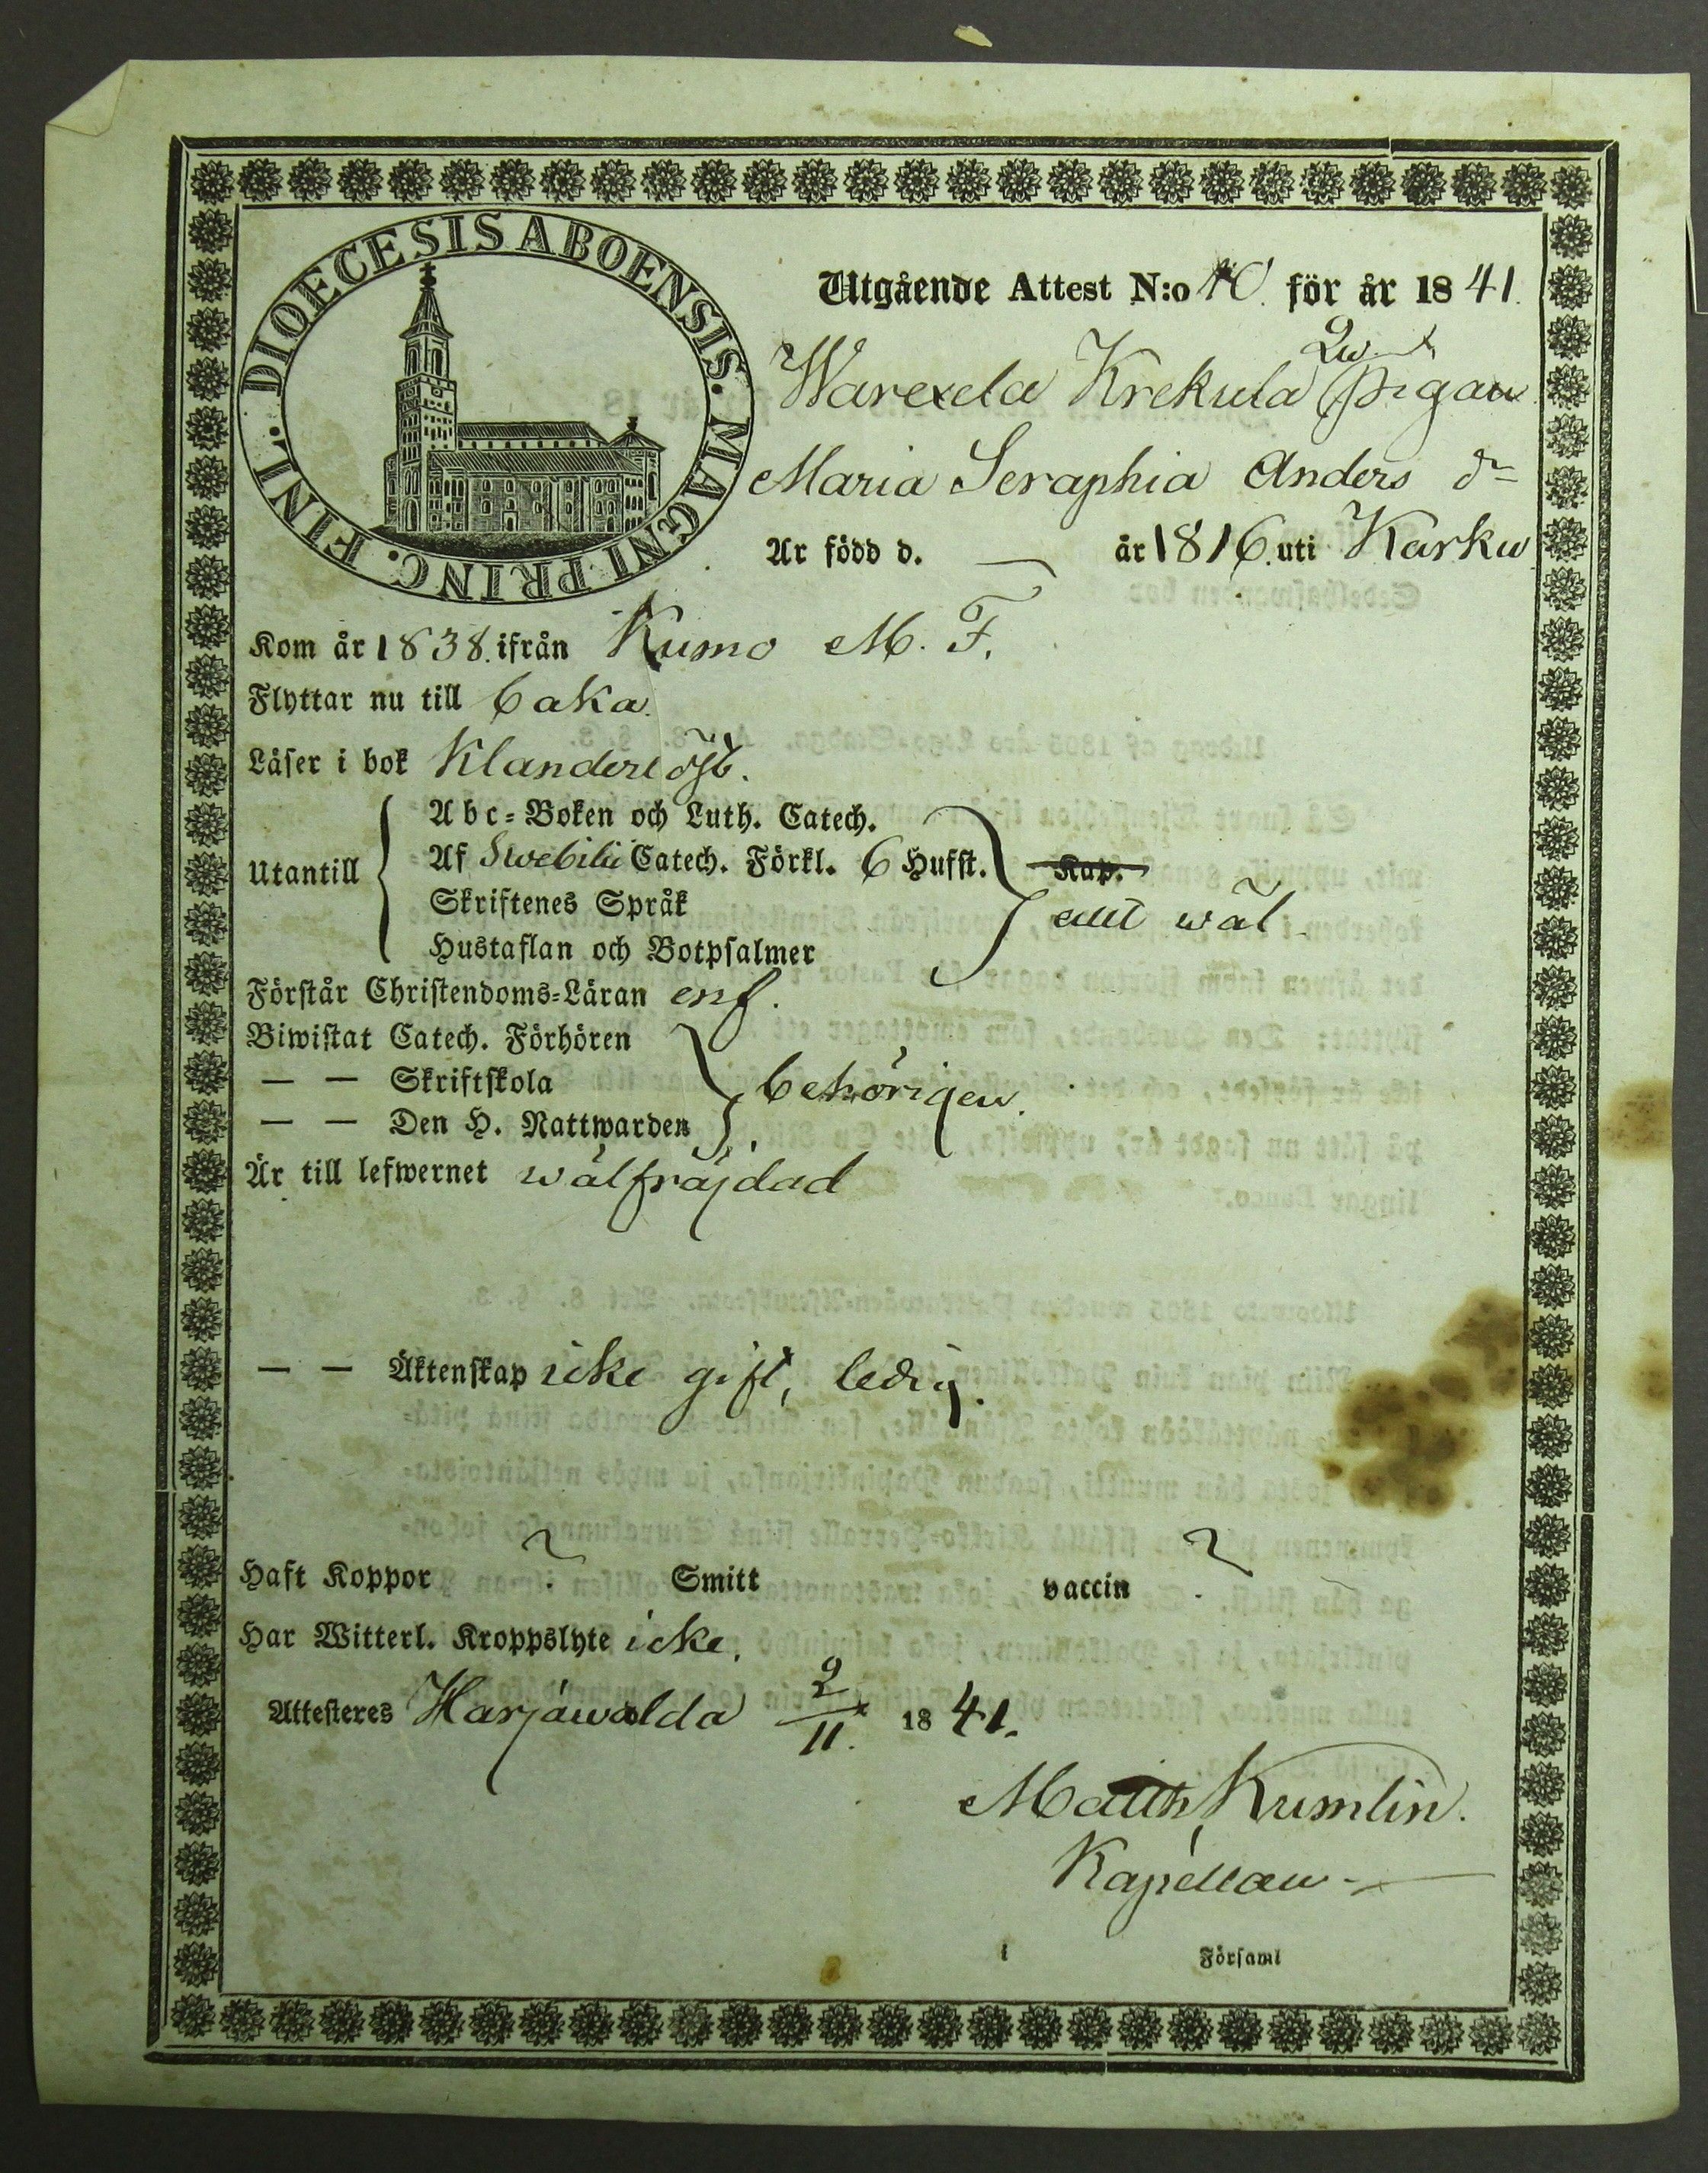 DIOECESIS ABOENSIS. MAGNI PRINC. FINL.
Utgående Attest N:o 40. för år 1841.
Warexela Krekula Pigan
Maria Seraphia Anders dr
Är född d. — år 1816. uti Karku
Kom år 1838. ifrån Kumo M. F.
Flyttar nu till baka.
Läser i bok Klanderlöst.
Utantill
Abc-Boken och Luth. Catech.
Af Swebilii Catech. Förkl. 6 Hufst. Kap.
Skriftenes Språk allt wäl
Hustaflan och Botpsalmer
Förstår Christendoms-Läran enf.
Biwistat Catech. Förhören
— — Skriftskola behörigen.
— — Den H. Nattwarden
Är till lefwernet wälfräjdad
— — Äktenskap icke gift, ledig.
Haft Koppor ? Smitt vaccin ?
Har Witterl. Kroppslyte icke.
Attesteres Harjawalda 2/11. 1841.
Matth Kumlin.
Kapellan
i Församl